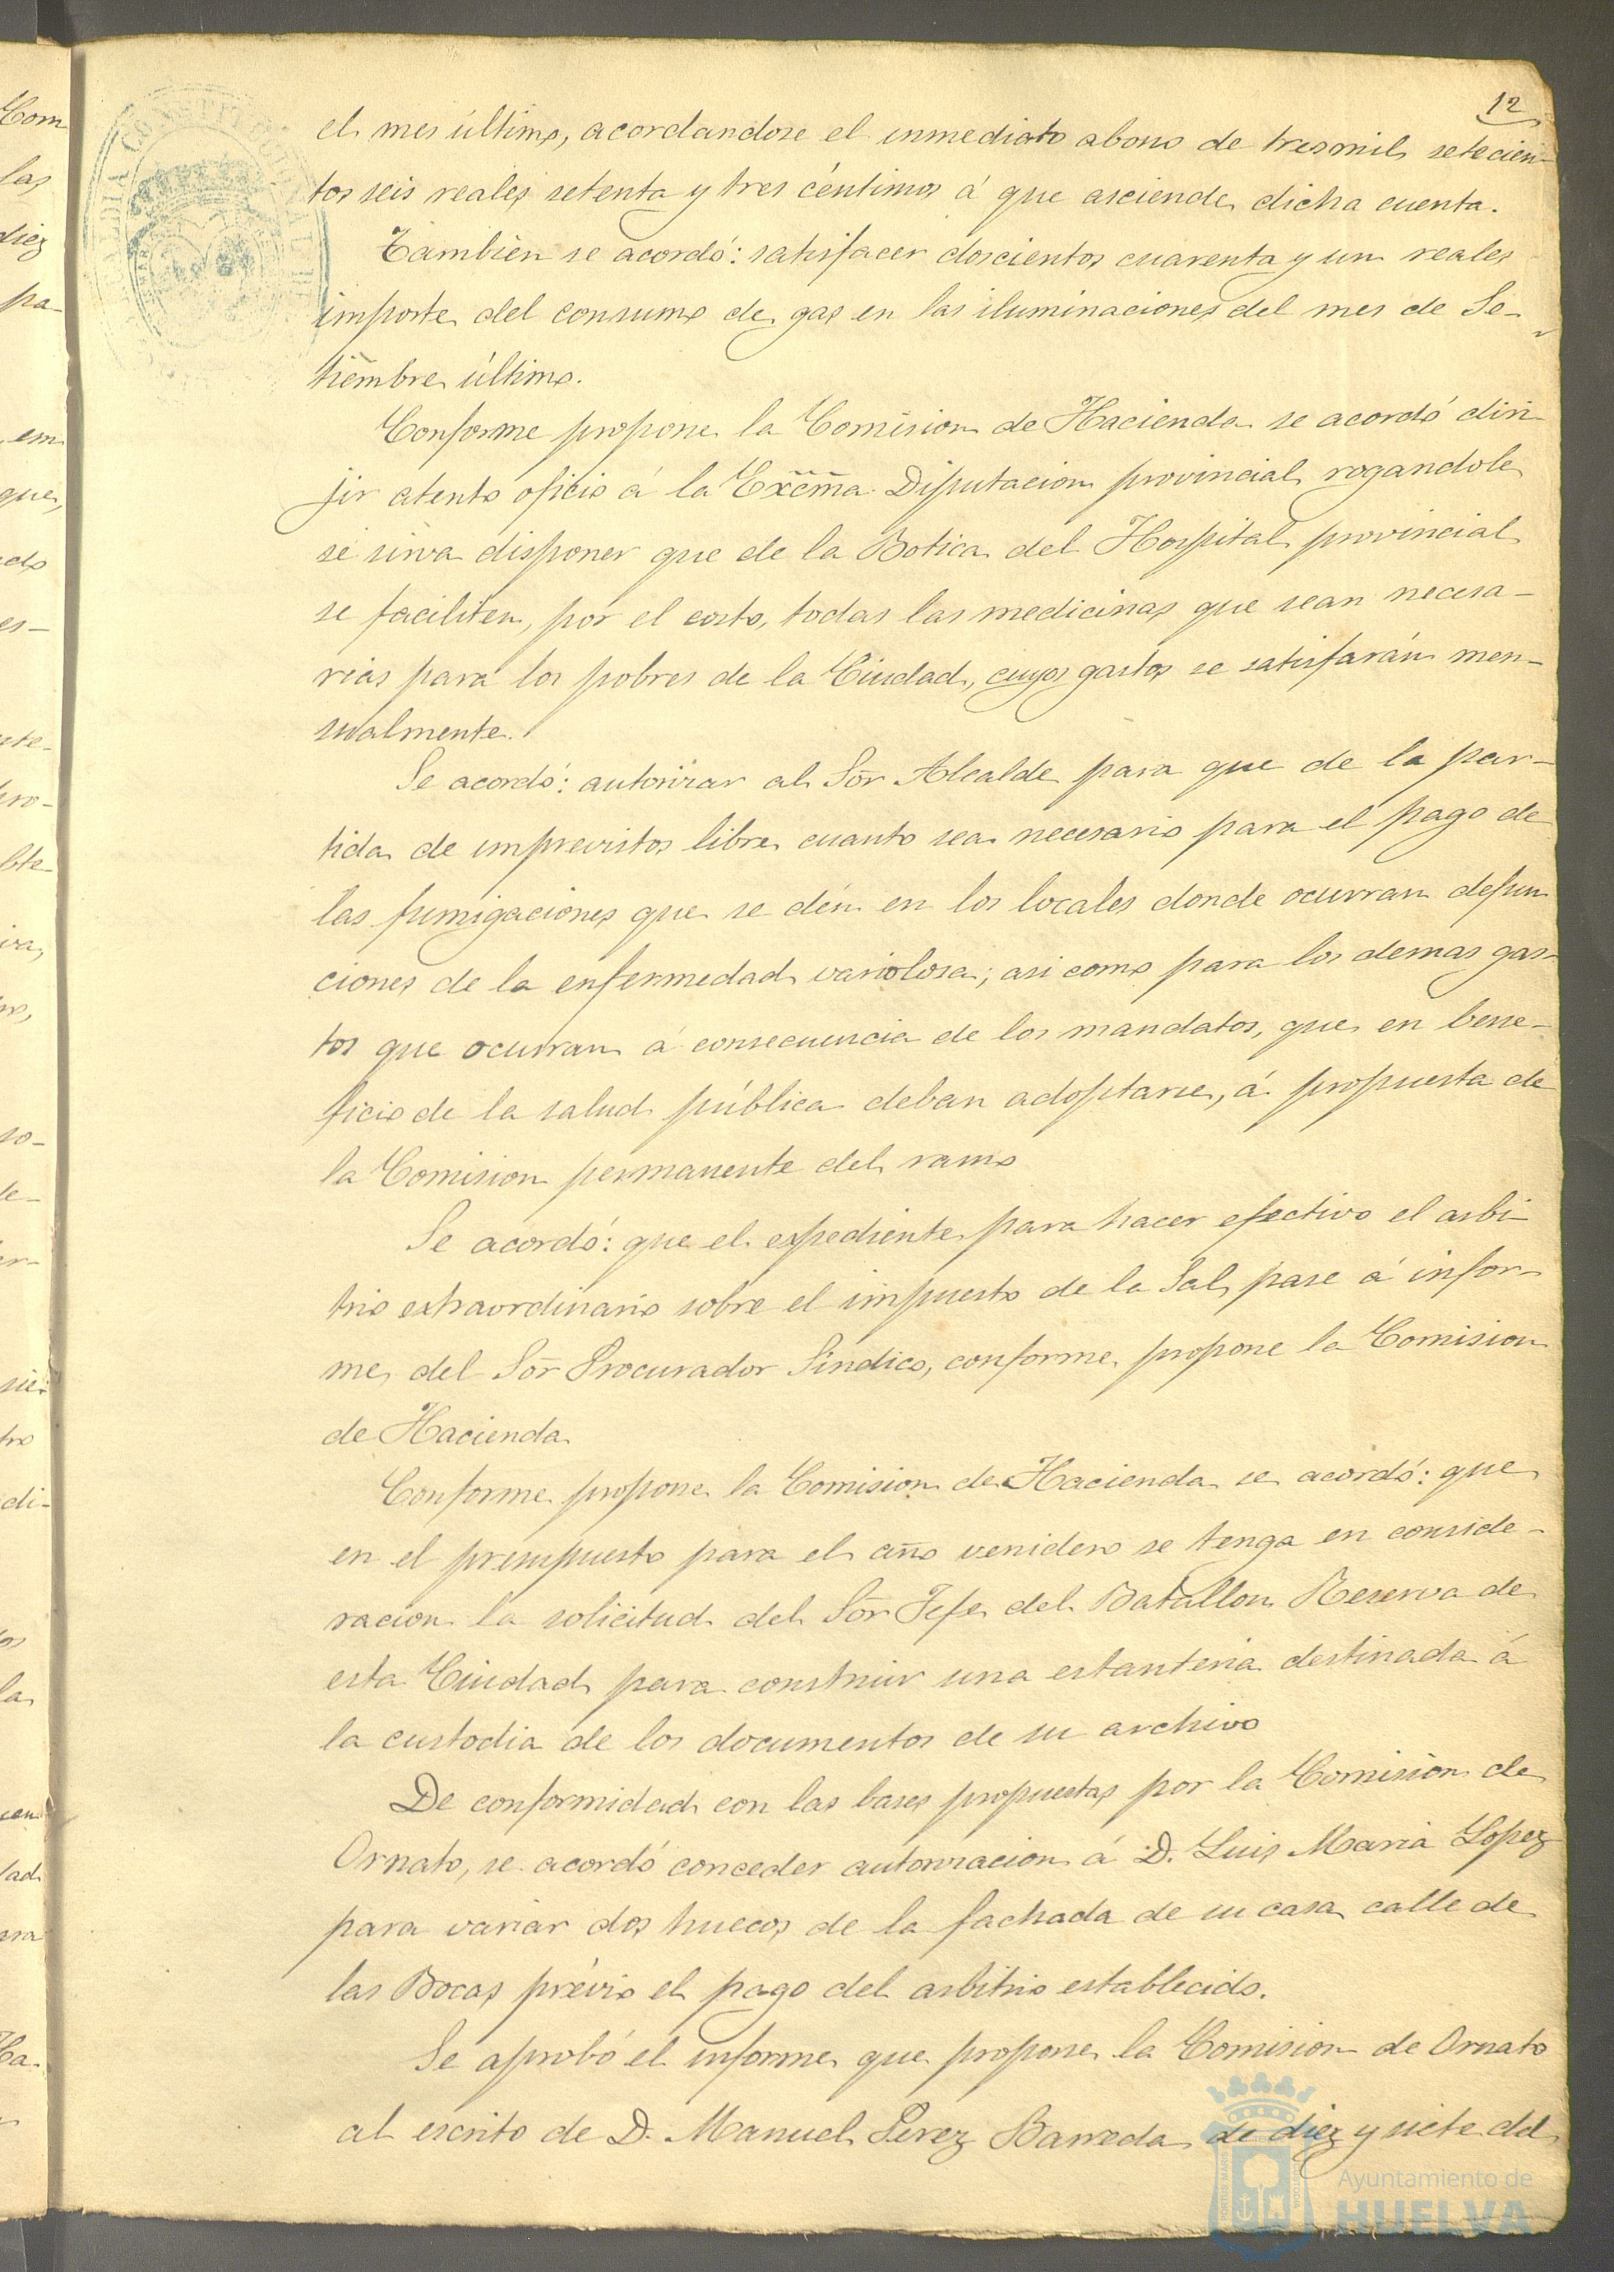 12
el mes último, acordandose el inmediato abono de tresmil setecien-
tos seis reales setenta y tres céntimos á que asciende dicha cuenta.
Tambien se acordó: satisfacer doscientos cuarenta y un reales
importe del consumo de gas en las iluminaciones del mes de Se-
tiembre último.
Conforme propone la Comision de Hacienda se acordó diri-
jir atento oficio á la Excma Diputacion provincial rogandole
se sirva disponer que de la Botica del Hospital provincial
se faciliten, por el costo, todas las medicinas que sean necesa-
rias para los pobres de la Ciudad, cuyos gastos se satisfarán men-
sualmente.
Se acordó: autorizar al Sõr Alcalde para que de la par-
tida de imprevistos libre cuanto sea necesario para el pago de
las fumigaciones que se dén en los locales donde ocurran defun
ciones de la enfermedad variolosa; asi como para los demas gas-
tos que ocurran á consecuencia de los mandatos, que en bene-
ficio de la salud pública deban adoptarse, á propuesta de
la Comision permanente del ramo
Se acordó: que el expediente para hacer efectivo el arbi
trio extraordinario sobre el impuesto de la Sal, pase á infor-
me del Sõr Procurador Sindico, conforme propone la Comision
de Hacienda
Conforme propone la Comision de Hacienda se acordó: que
en el presupuesto para el año venidero se tenga en conside-
racion la solicitud del Sõr Jefe del Batallon Reserva de
esta Ciudad para construir una estanteria destinada á
la custodia de los documentos de su archivo
De conformidad con las bases propuestas por la Comision de
Ornato, se acordó conceder autorizacion á D. Luis Maria Lopez
para variar dos huecos de la fachada de su casa calle de
las Bocas prévio el pago del arbitrio establecido.
Se aprobó el informe que propone la Comision de Ornato
al escrito de D. Manuel Perez Barreda de diez y siete del
Ayuntamiento de
HUELVA